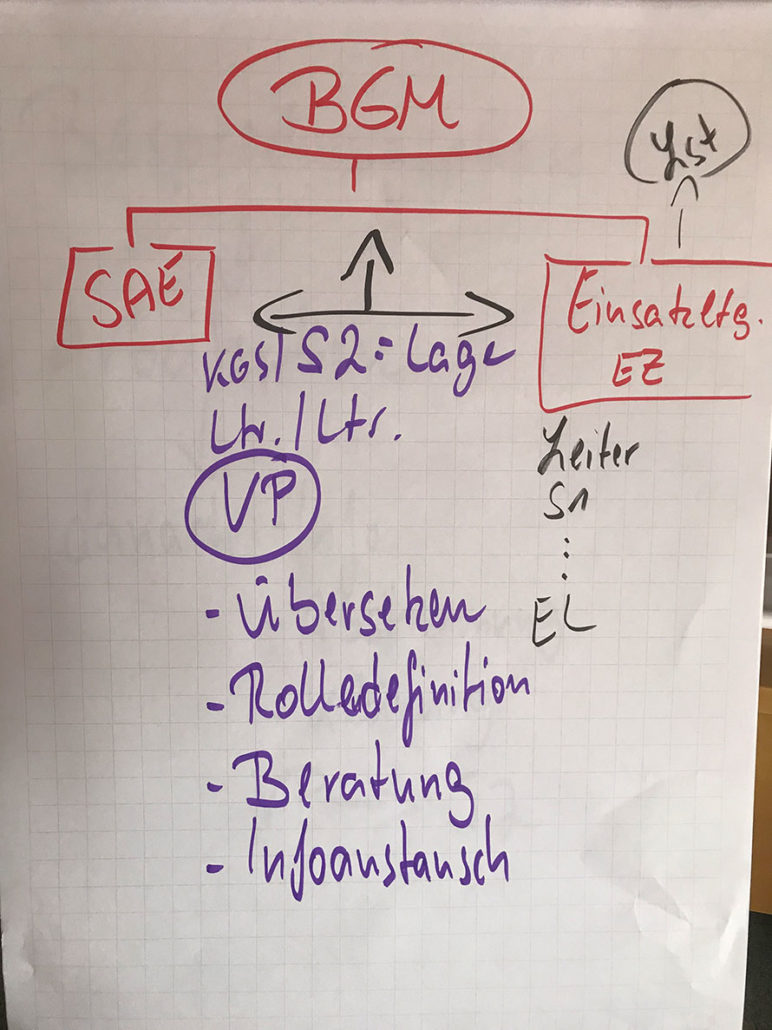 BGM
Lst
SAE
Einsatzltg.
EZ
KGS/S2=Lage
Ltr./Ltr.
VP
Leiter
S1
⋮
EL
- Übersetzen
- Rolledefinition
- Beratung
- Infoaustausch